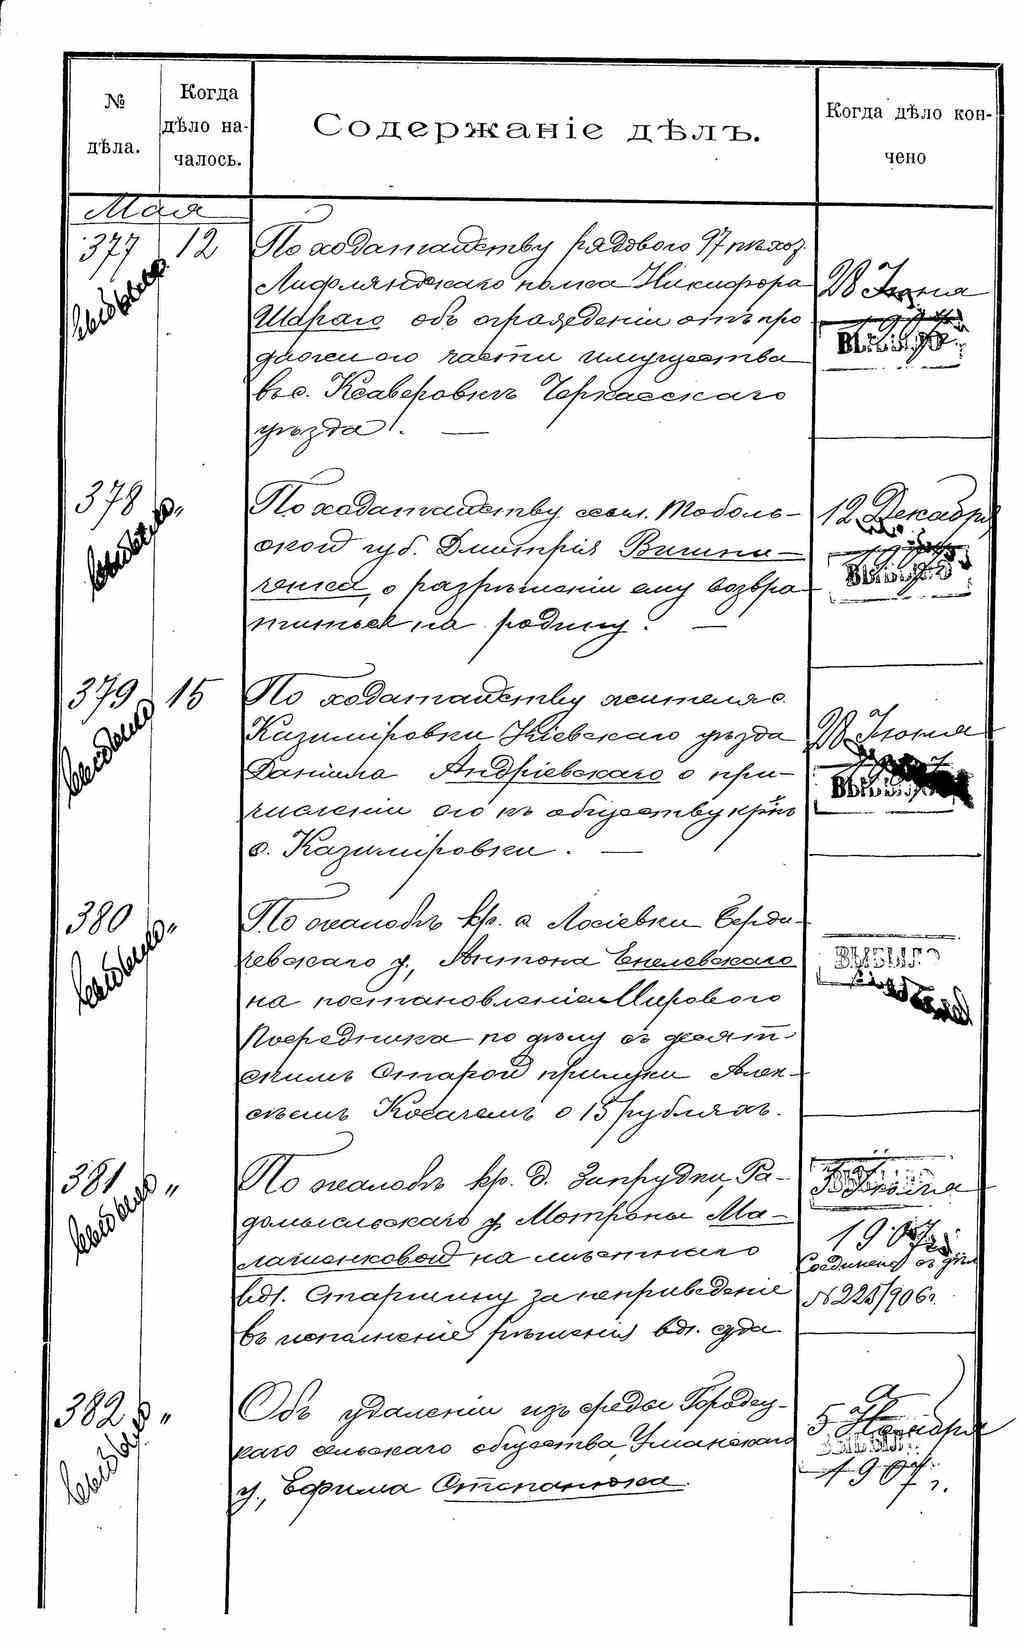 № дѣла.
Когда дѣло на-
чалось.
Содержаніе дѣлъ.
Когда дѣло кон-
чено
Мая
377 12 По ходатайству рядового 97 пѣхот.
Лифляндскаго полка Никифора
Шараго объ огражденіи отъ про
дажи его части имущества
въ с. Ксаверовкѣ Черкасскаго
уѣзда. —
выбыло
28 Іюня
1907
ВЫБЫЛО
378 " По ходатайству ссыл. Тоболь-
ской губ. Дмитрія Винни-
ченка, о разрѣшеніи ему возвра-
титься на родину. —
выбыло
12 Декабря
1907
ВЫБЫЛО
379 15 По ходатайству жителя с.
Казиміровки Кіевскаго уѣзда
Даніила Андріевскаго о при-
численіи его къ обществу кр-нъ
с. Казиміровки. —
выбыло
28 Іюня
ВЫБЫЛО
380 " По жалобѣ кр. с. Лосіевки Берди-
чевскаго у., Антона
на постановленіе Мирового
Посредника по дѣлу съ десят-
скимъ Старой прилуки Алек-
сѣемъ Косачемъ о 15 рубляхъ.
выбыло
ВЫБЫЛО
381 " По жалобѣ кр. д. Запрудки, Ра-
домысльскаго у. Мотроны Ма-
лашенковой на мѣстнаго
вол. Старшину за неприведеніе
въ исполненіе рѣшенія вол. суда
выбыло
Іюля
1907
Соединено съ дѣл.
№ 225/906 г.
382 " Объ удаленіи изъ среды Городец-
каго сельскаго общества, Уманскаго
у., Ефима Степанюка.
выбыло
5 Ноября
ВЫБЫЛО
1907 г.